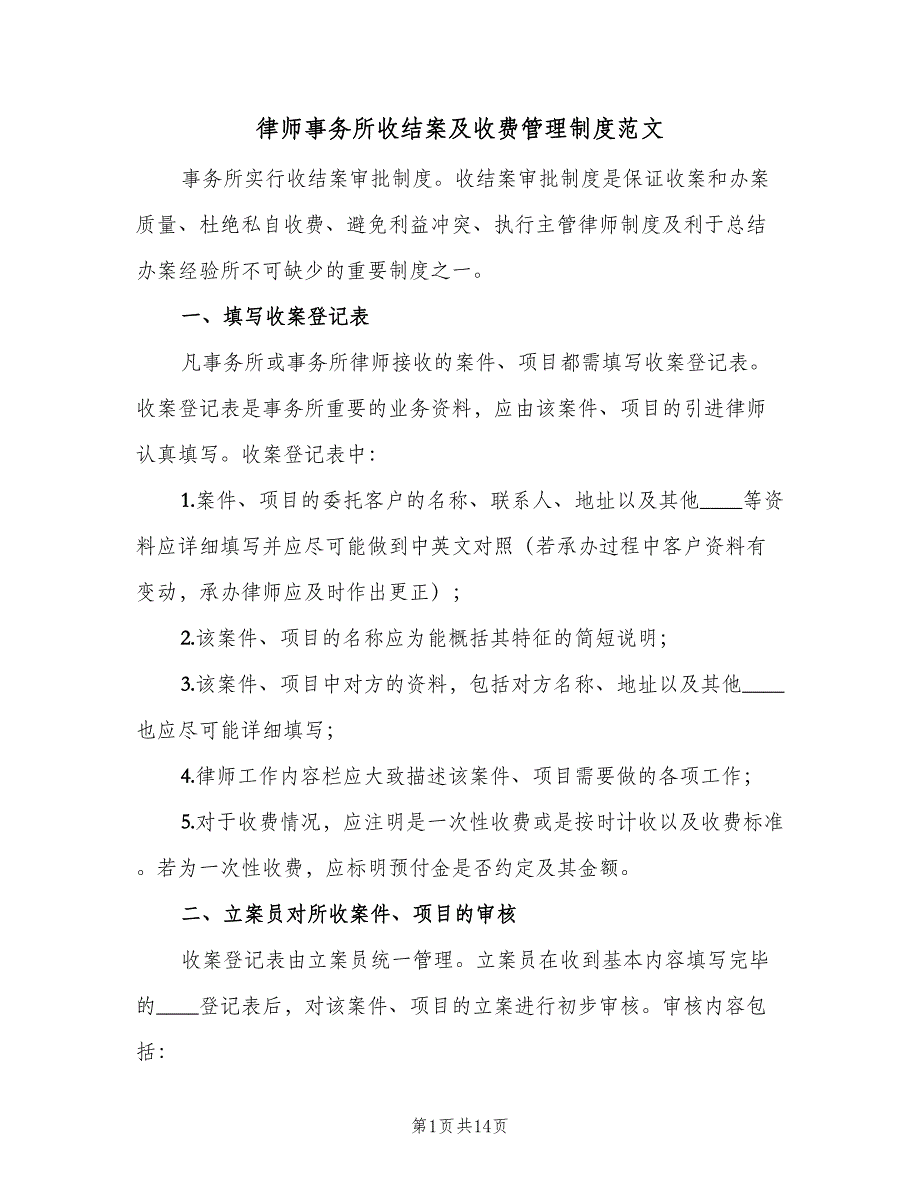 律师事务所收结案及收费管理制度范文
事务所实行收结案审批制度。收结案审批制度是保证收案和办案
质量、杜绝私自收费、避免利益冲突、执行主管律师制度及利于总结
办案经验所不可缺少的重要制度之一。
一、填写收案登记表
凡事务所或事务所律师接收的案件、项目都需填写收案登记表。
收案登记表是事务所重要的业务资料，应由该案件、项目的引进律师
认真填写。收案登记表中：
1.案件、项目的委托客户的名称、联系人、地址以及其他____等资
料应详细填写并应尽可能做到中英文对照（若承办过程中客户资料有
变动，承办律师应及时作出更正）；
2.该案件、项目的名称应为能概括其特征的简短说明；
3.该案件、项目中对方的资料，包括对方名称、地址以及其他____
也应尽可能详细填写；
4.律师工作内容栏应大致描述该案件、项目需要做的各项工作；
5.对于收费情况，应注明是一次性收费或是按时计收以及收费标准
。若为一次性收费，应标明预付金是否约定及其金额。
二、立案员对所收案件、项目的审核
收案登记表由立案员统一管理。立案员在收到基本内容填写完毕
的____登记表后，对该案件、项目的立案进行初步审核。审核内容包
括：
第1页共14页